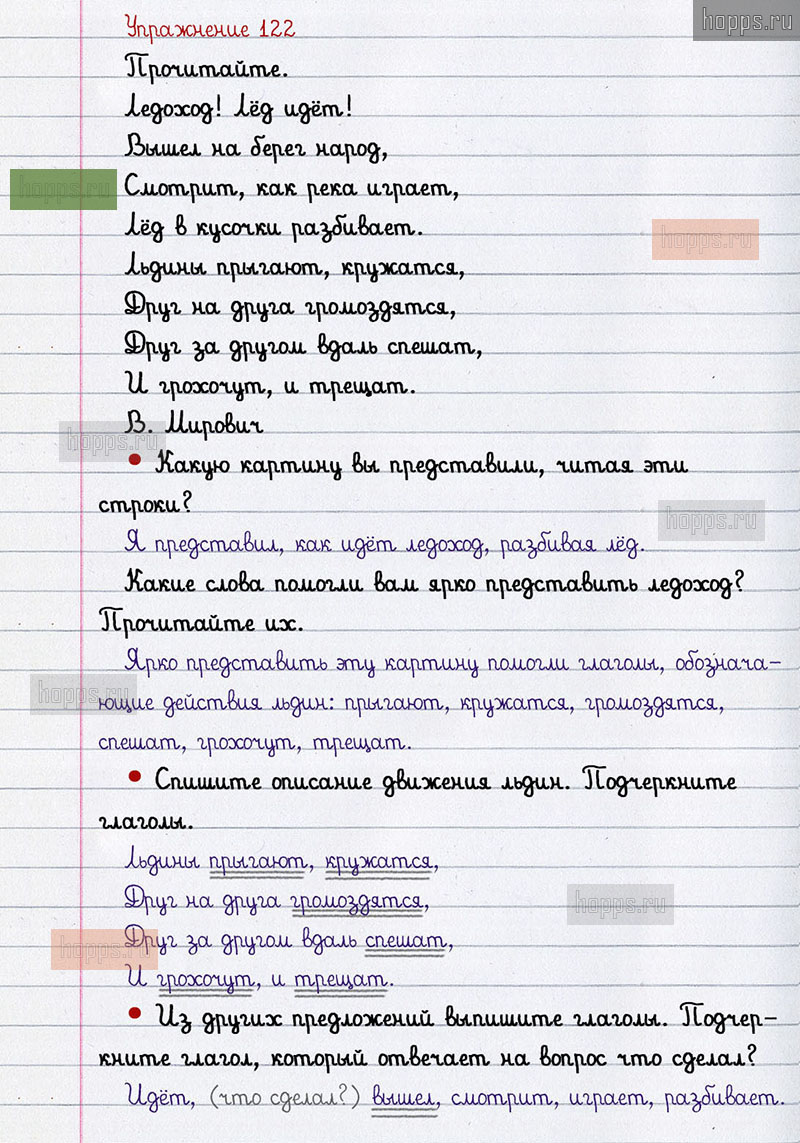 hopps.ru
Упражнение 122
Прочитайте.
Ледоход! Лёд идёт!
Вышел на берег народ,
hopps.ru
Смотрит, как река играет,
Лёд в кусочки разбивает.
hopps.ru
Льдины прыгают, кружатся,
Друг на друга громоздятся,
Друг за другом вдаль спешат,
И грохочут, и трещат.
В. Мирович
hopps.ru
• Какую картину вы представили, читая эти
строки?
hopps.ru
Я представил, как идёт ледоход, разбивая лёд.
Какие слова помогли вам ярко представить ледоход?
Прочитайте их.
Ярко представить эту картину помогли глаголы, обознача-
hopps.ru
ющие действия льдин: прыгают, кружатся, громоздятся,
спешат, грохочут, трещат.
• Спишите описание движения льдин. Подчеркните
глаголы.
Льдины прыгают, кружатся,
Друг на друга громоздятся,
hopps.ru
Друг за другом вдаль спешат,
hopps.ru
И грохочут, и трещат.
• Из других предложений выпишите глаголы. Подчер-
кните глагол, который отвечает на вопрос что сделал?
Идёт, (что сделал?) вышел, смотрит, играет, разбивает.